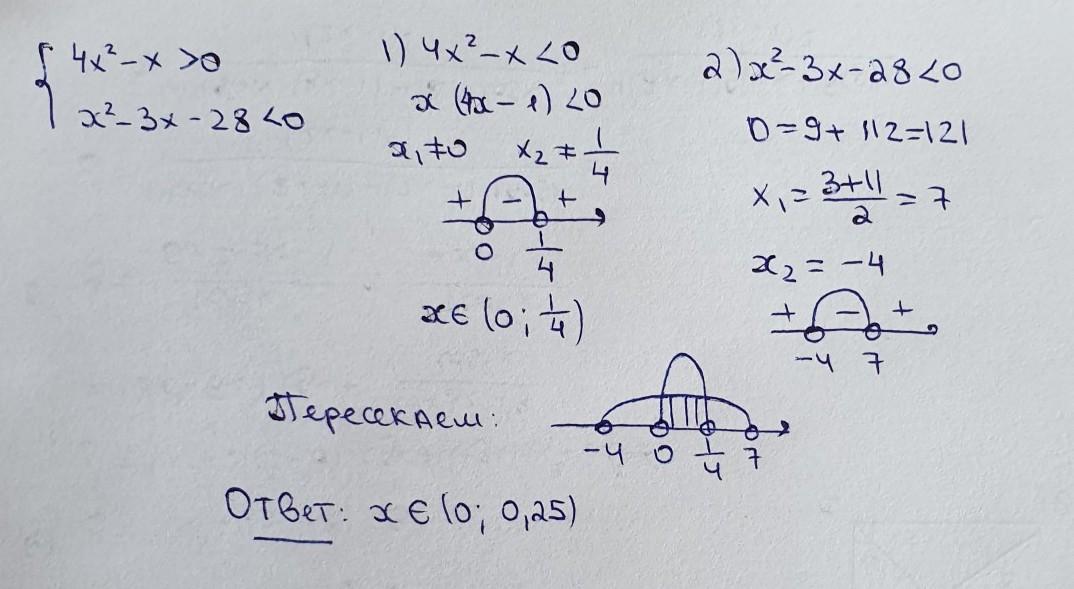 4x² - x > 0
x² - 3x - 28 < 0
1) 4x² - x < 0
x (4x - 1) < 0
x₁ ≠ 0 x₂ ≠ 1/4
+ - +
0 1/4
x ∈ (0; 1/4)
2) x² - 3x - 28 < 0
D = 9 + 112 = 121
x₁ = (3+11)/2 = 7
x₂ = -4
+ - +
-4 7
Пересекаем:
-4 0 1/4 7
Ответ: x ∈ (0; 0,25)